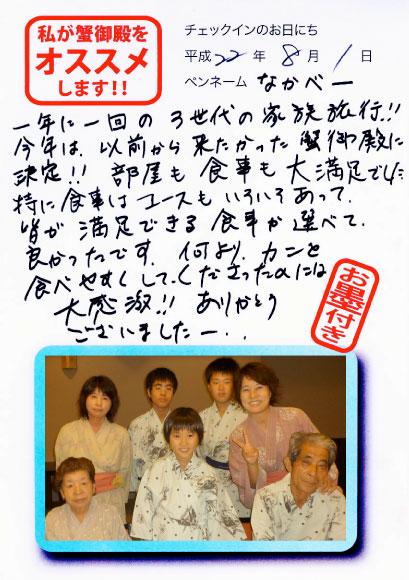 私が蟹御殿を
オススメ
します!!
チェックインのお日にち
平成 22 年 8 月 1 日
ペンネーム なかべー
一年に一回の3世代の家族旅行!!
今年は、以前から来たかった蟹御殿に
決定!! 部屋も食事も大満足でした
特に食事はコースもいろいろあって、
皆が満足できる食事が選べて、
良かったです。何より、カンと
食べやすくしてくださったのには
大感激!! ありがとう
ございましたー..
お墨付き